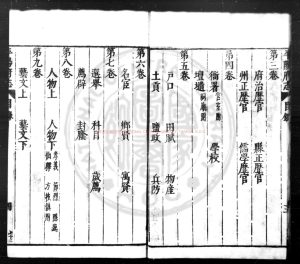 第三卷
府治歷官 縣正歷官
州正歷官 儒學歷官
第四卷
衙署 學校
壇壝
第五卷
戶口 田賦 物產
土貢 鹽政 兵防
第六卷
名宦 鄉賢 寓賢
第七卷
選舉 科目 歲薦
薦辟 封廕
第八卷
人物上 人物下
第九卷
藝文上 藝文下